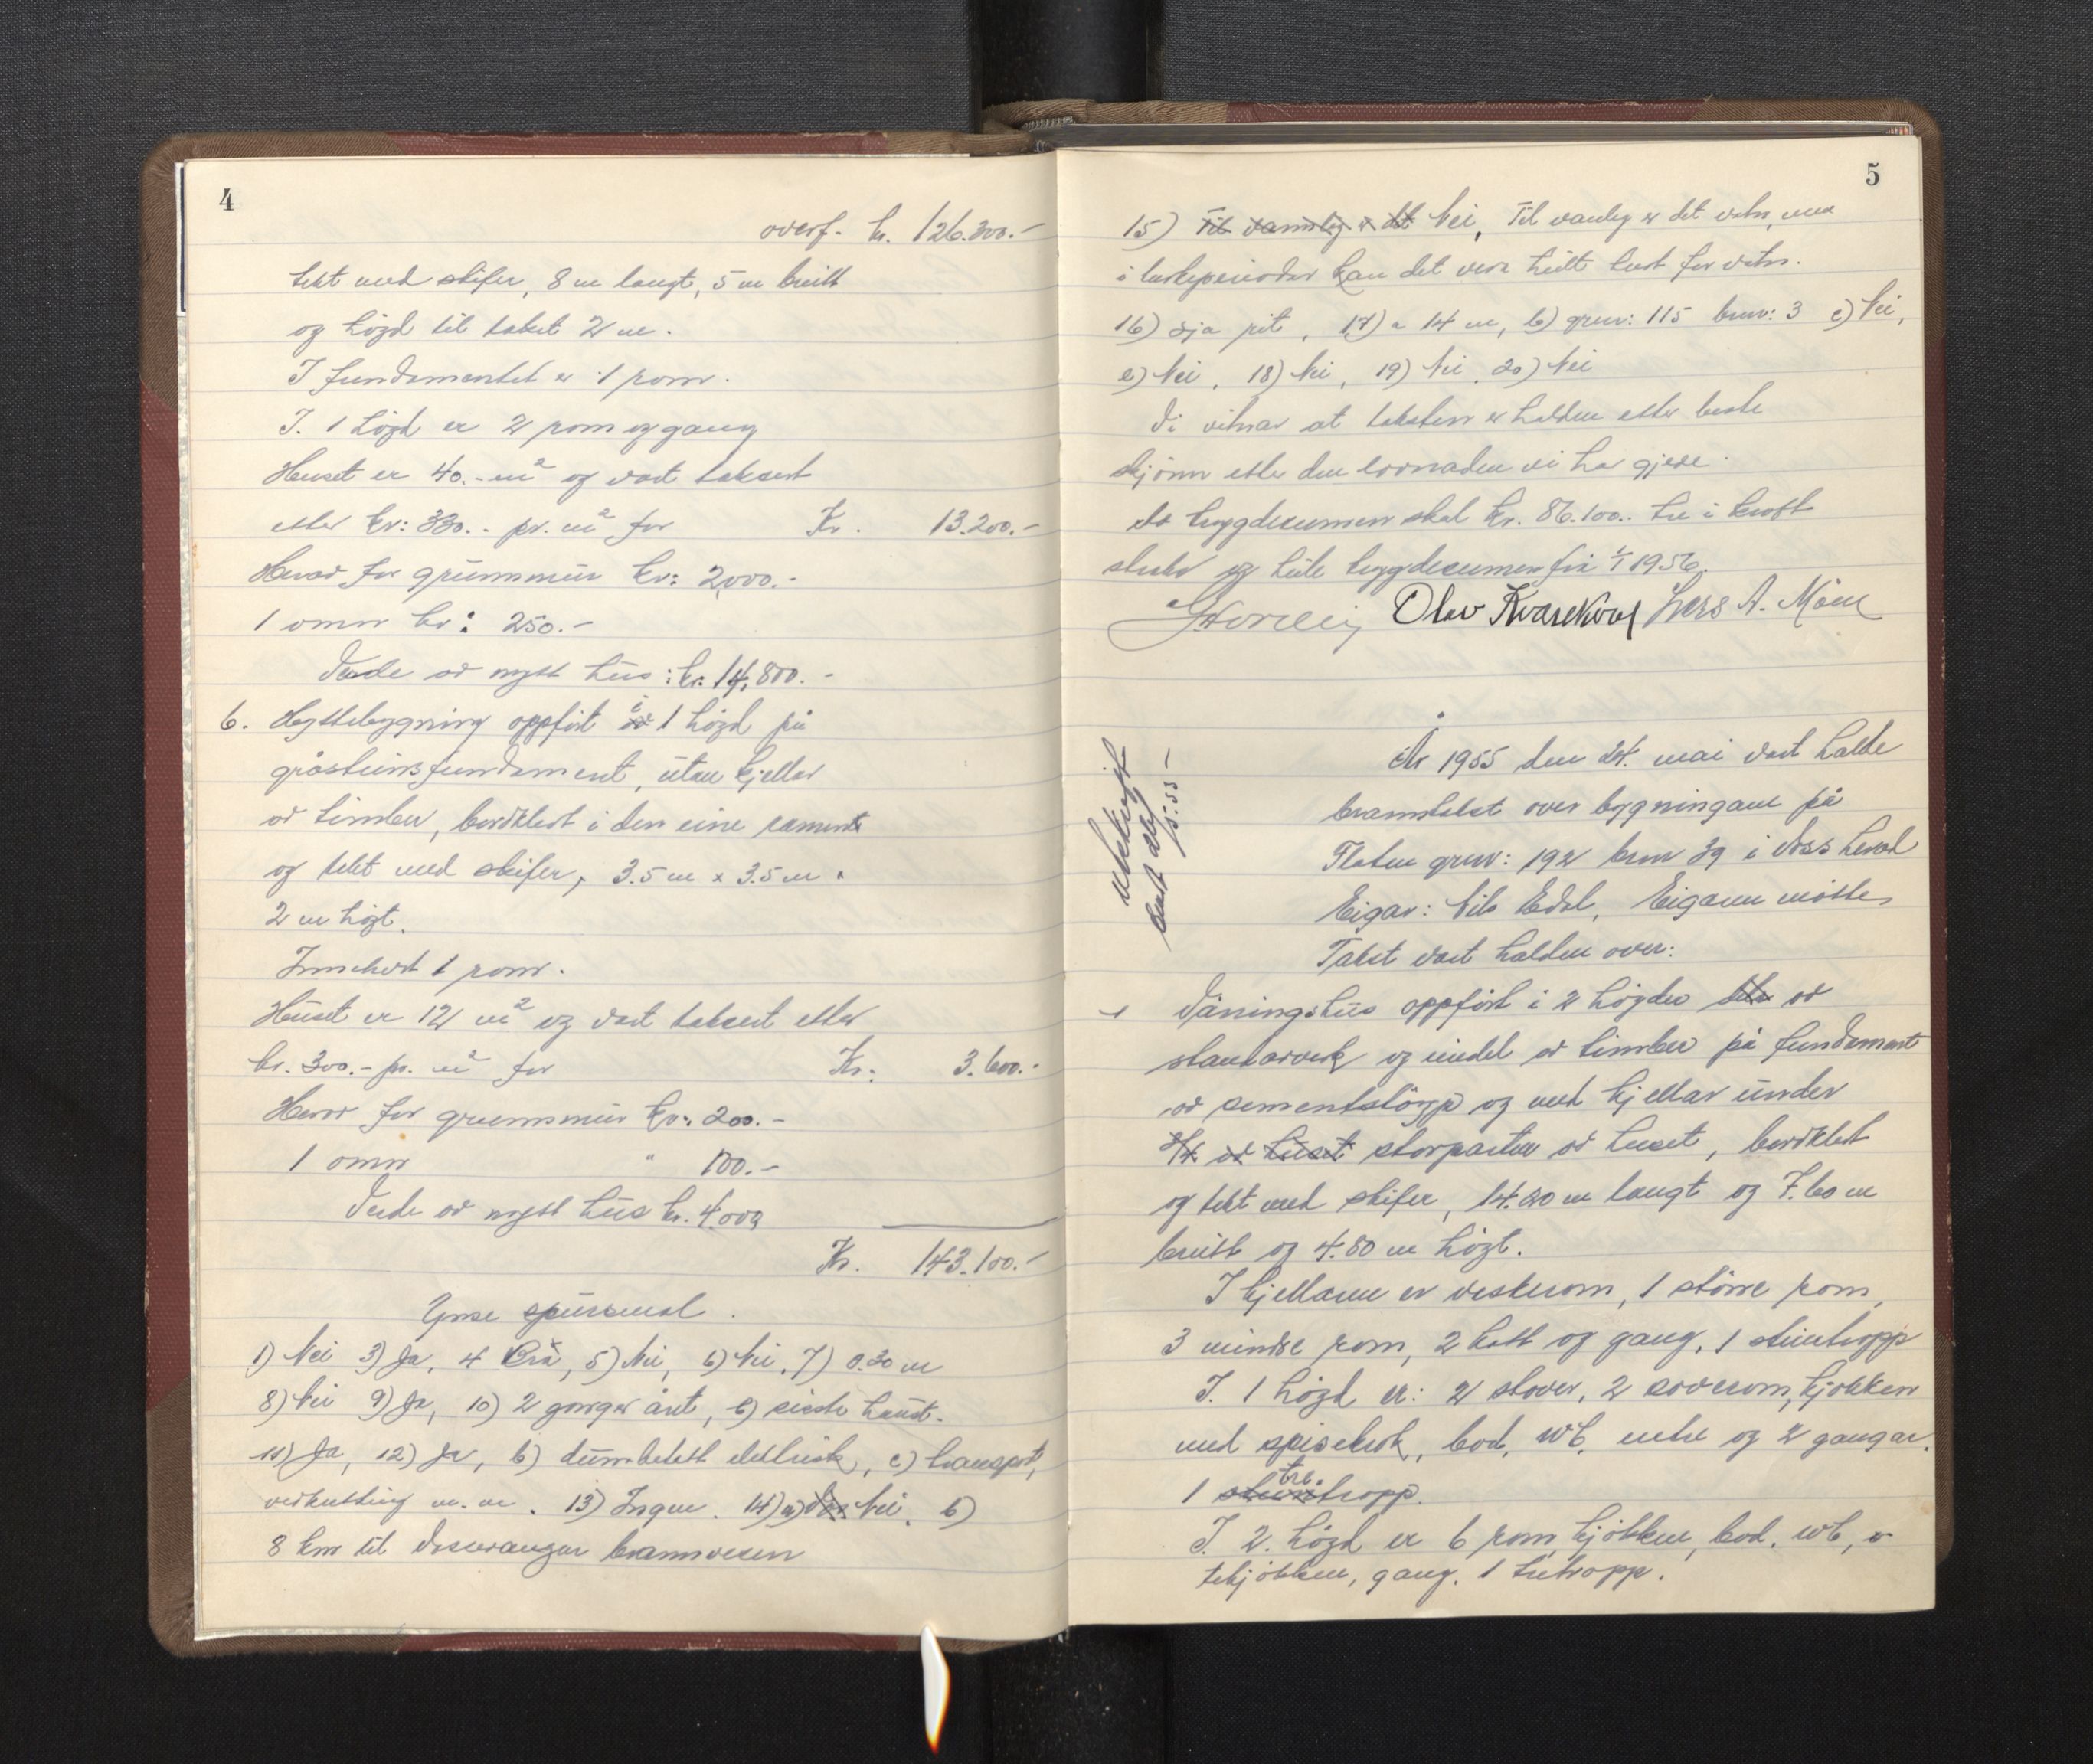 4
overf. kr. 126.300.-
tekt med skifer, 8 m langt, 5 m breitt
og högd til taket 2 m.
I fundamentet er 1 rom.
I. 1 högd er 2 rom og gang
Huset er 40.- m² og vart taksert
etter kr: 330.- pr. m² for Kr. 13.200.-
Herav for grunnmur kr: 2000.-
1 omn kr: 250.-
Verde av nytt hus: kr. 14,800.-
6. Hyttebygning oppfört i av 1 högd på
gråsteinsfundament, utan kjellar
av timber, bordkledt i den eine
og tekt med skifer, 3.5 m x 3.5 m.
2 m högt.
Innehold 1 rom.
Huset er 12 m² og vart taksert etter
kr. 300.- pr. m² for Kr: 3.600.-
Herav for grunnmur kr: 200.-
1 omn " 100.-
Verde av nytt hus kr. 4.000
Kr. 143.100.-
Ymse spursmål.
1) Nei 3) Ja, 4 Bra, 5) Nei, 6) Nei, 7) 0.30 m
8) Nei 9) Ja, 10) 2 gonger året, b) siste haust.
11) Ja, 12) Ja, b) elektrisk, c) transport,
vedkutting m. m. 13) Ingen. 14) a) Nei, b)
8 km til Vossevangen brannvesen
5
15) Til vannleg er det Nei, Til vanleg er det vatn, men
i turkeperiodar kan det vera heilt turt for vatn.
16) sja rit, 17) a 14 m, b) gnr: 115 bnr: 3 c) Nei,
e) Nei, 18) Nei, 19) Nei, 20) Nei
Vi vitnar at taksten er halden etter beste
skjönn etter den lovnaden vi har gjeve.
Av byggdesummen skal kr. 86.100.- tre i kraft
straks og heile byggdesummen frå 1/1 1956.
Olav Kvarekval Lars A. Möen
År 1955 den 24. mai vart halde
branntakst over bygningane på
Flaten gnr: 192 bnr 39 i Voss herad
Eigar: Nils Edal, Eigaren mötte,
Takst vart halden over:
Utskrift
sendt
1 Våningshus oppfört i 2 högder av
standarverk og eindel av timber på fundament
av sementstöyp og med kjellar under
av huset storparten av huset, bordkledt
og tekt med skifer, 14.20 m langt og 7.60 m
breitt og 4.80 m högt.
I kjellaren er vaskerom, 1 större rom,
3 mindre rom, 2 kott og gang, 1 steintropp
I. 1 högd er: 2 stover, 2 soverom, kjökken
med spisekrok, bod, WC, entre og 2 gangar.
1 stein tre tropp.
I. 2. högd er 6 rom, kjökken, bod, WC,
tekjökken, gang. 1 tretropp.